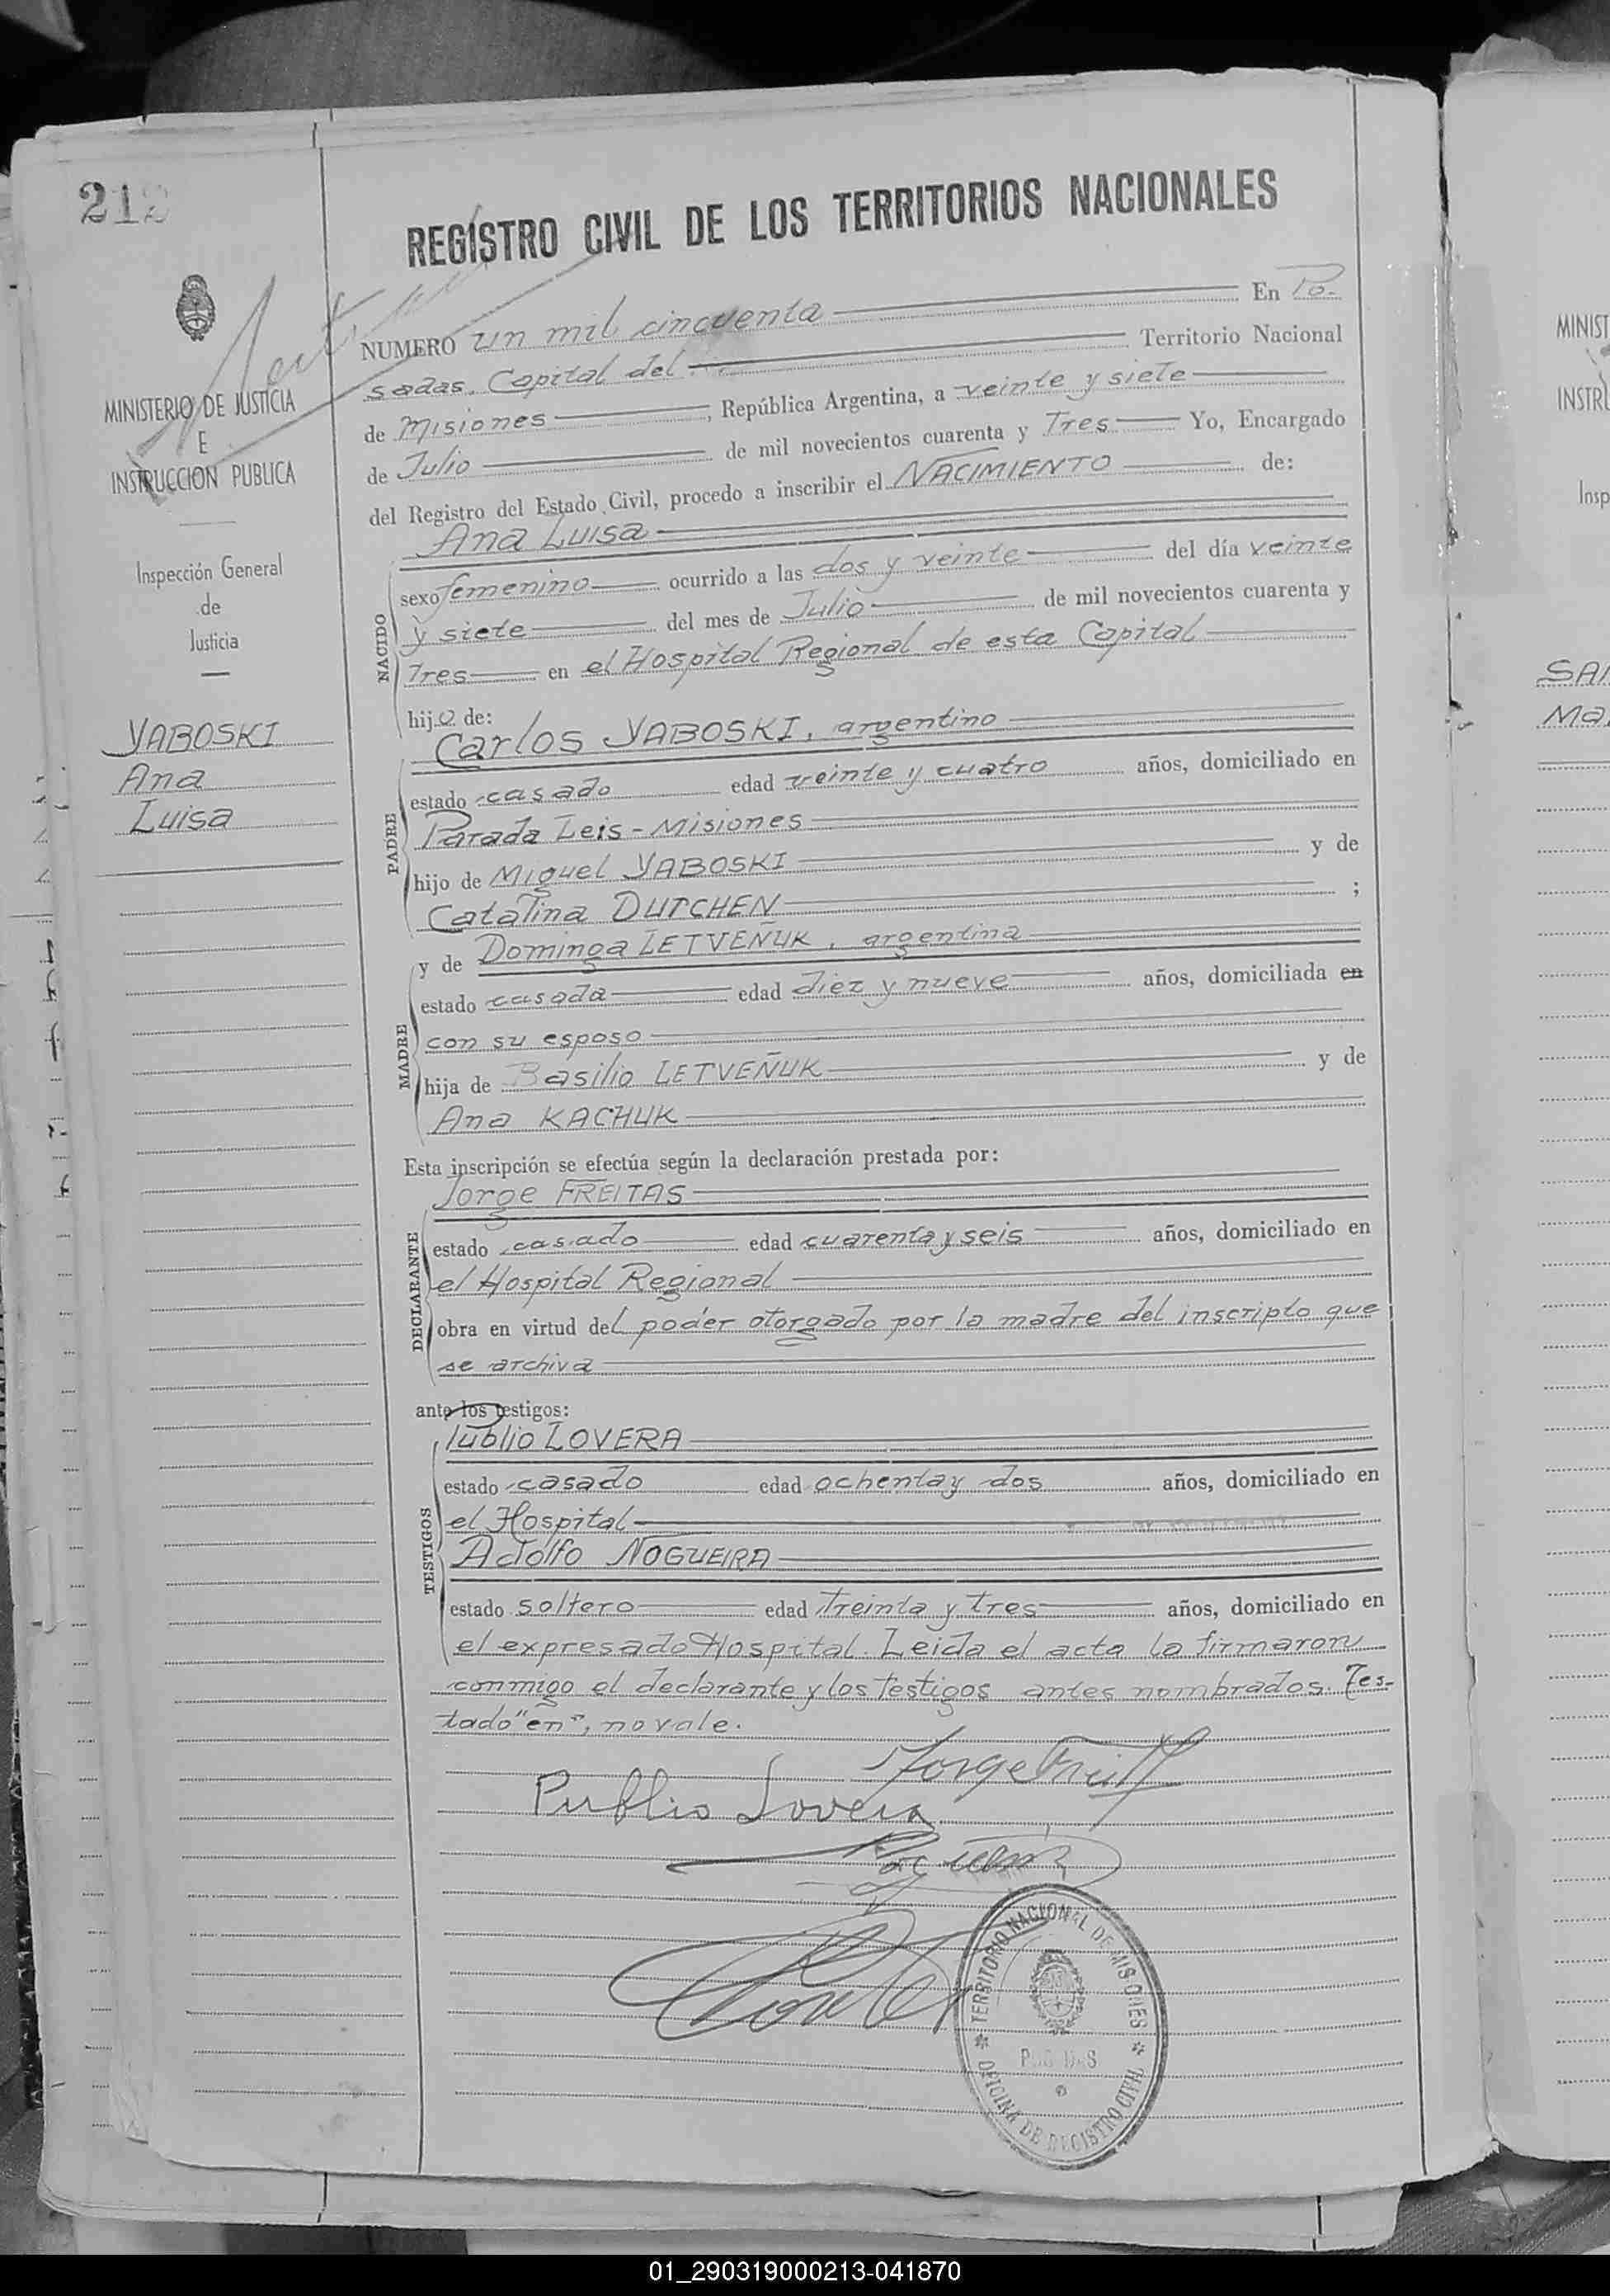 212
REGISTRO CIVIL DE LOS TERRITORIOS NACIONALES
MINISTERIO DE JUSTICIA
E
INSTRUCCION PUBLICA
Inspección General
de
Justicia
YABOSKI
Ana
Luisa
NUMERO un mil cincuenta En Po-
sadas, Capital del Territorio Nacional
de Misiones, República Argentina, a veinte y siete
de Julio de mil novecientos cuarenta y Tres Yo, Encargado
del Registro del Estado Civil, procedo a inscribir el NACIMIENTO de:
Ana Luisa
NACIDO
sexo femenino ocurrido a las dos y veinte del día veinte
y siete del mes de Julio de mil novecientos cuarenta y
Tres en el Hospital Regional de esta Capital
hijo de:
Carlos YABOSKI, argentino
PADRE
estado casado edad veinte y cuatro años, domiciliado en
Parada Leis - Misiones
hijo de Miguel YABOSKI y de
Catalina DUTCHEN ;
y de Dominga LETVEÑUK, argentina
MADRE
estado casada edad diez y nueve años, domiciliada en
con su esposo
hija de Basilio LETVEÑUK y de
Ana KACHUK
Esta inscripción se efectúa según la declaración prestada por:
Jorge FREITAS
DECLARANTE
estado casado edad cuarenta y seis años, domiciliado en
el Hospital Regional
obra en virtud del poder otorgado por la madre del inscripto que
se archiva
ante los testigos:
Publio LOVERA
TESTIGOS
estado casado edad ochenta y dos años, domiciliado en
el Hospital
Adolfo NOGUEIRA
estado soltero edad Treinta y Tres años, domiciliado en
el expresado Hospital. Leida el acta la firmaron
conmigo el declarante y los Testigos antes nombrados. Tes-
tado "en", no vale.
Jorge Freitas
Publio Lovera
TERRITORIO NACIONAL DE MISIONES
POSADAS
OFICINA DE REGISTRO CIVIL
MINIST
INSTRU
Insp
SAN
Ma
01_290319000213-041870